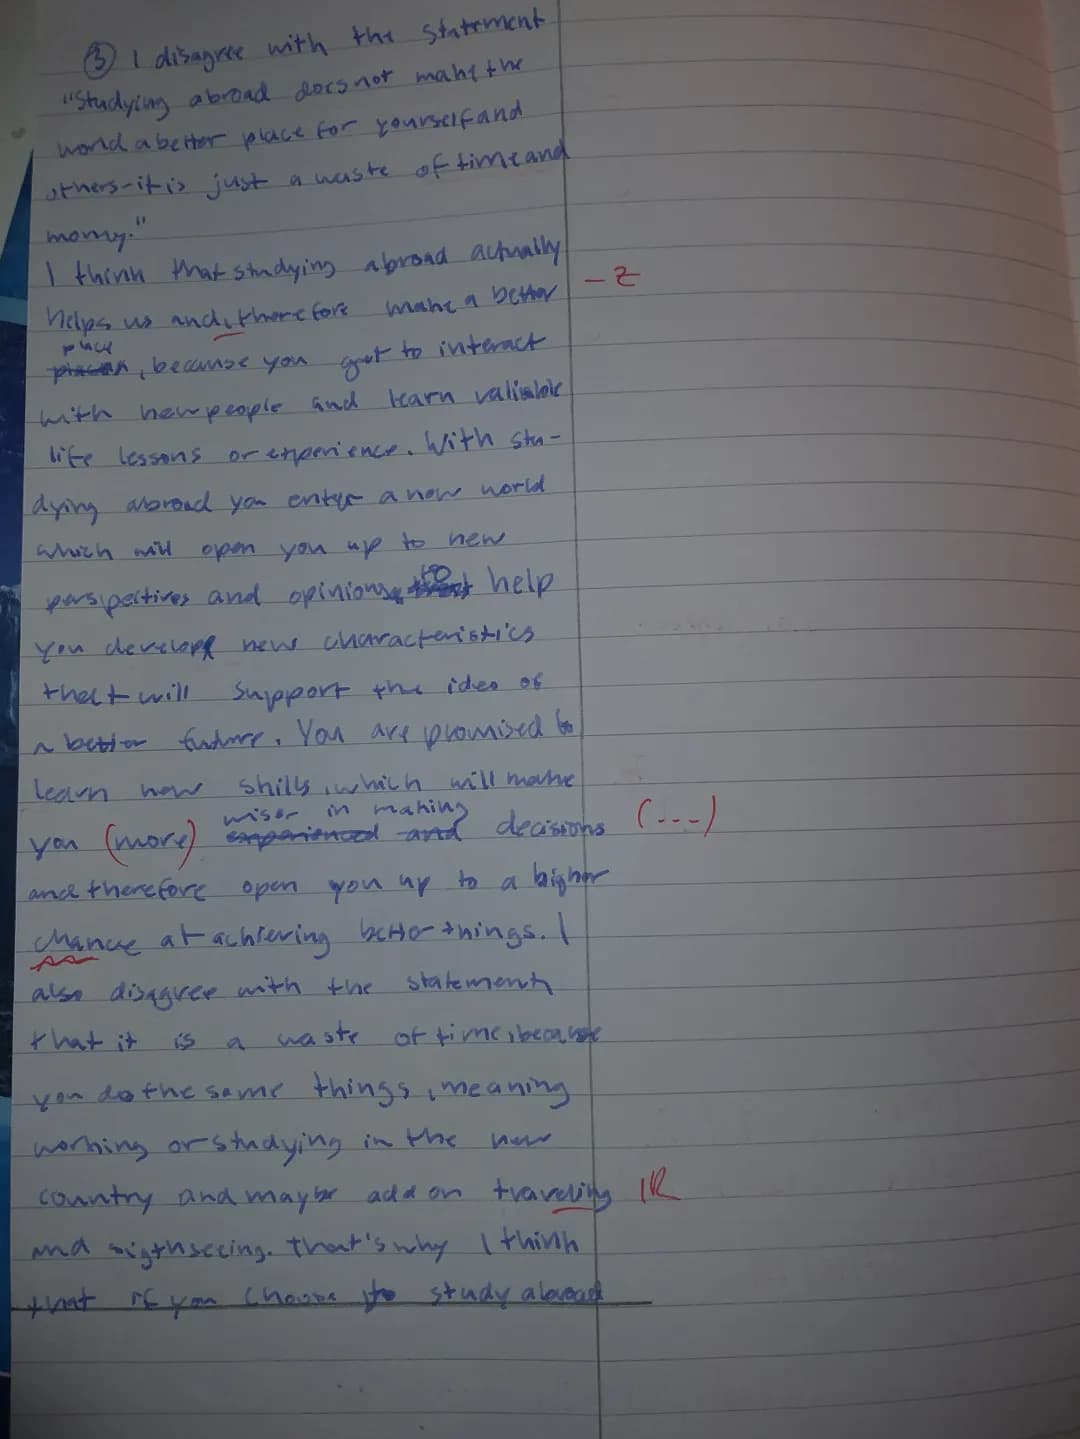 ③ I disagree with the statement
"Studying abroad does not make the
world a better place for yourself and
others-it is just a waste of time and
money."
I think that studying abroad actually
helps us and, therefore make a better -Z
place
, because you get to interact
with new people and learn valiable
life lessons or experience. With stu-
dying abroad you enter a new world
which will open you up to new
perspectives and opinions, to help
you develop new characteristics
that will support the idea of
a better future. You are promised to
learn new skills, which will make
wiser in making
you (more) experienced and decisions (---)
and therefore open you up to a higher
chance at achieving better things. I
also disagree with the statement
that it is a waste of time, because
you do the same things, meaning
working or studying in the new
country and maybe add on traveling IR
and sigthseeing. That's why I think
that if you choose to study abroad